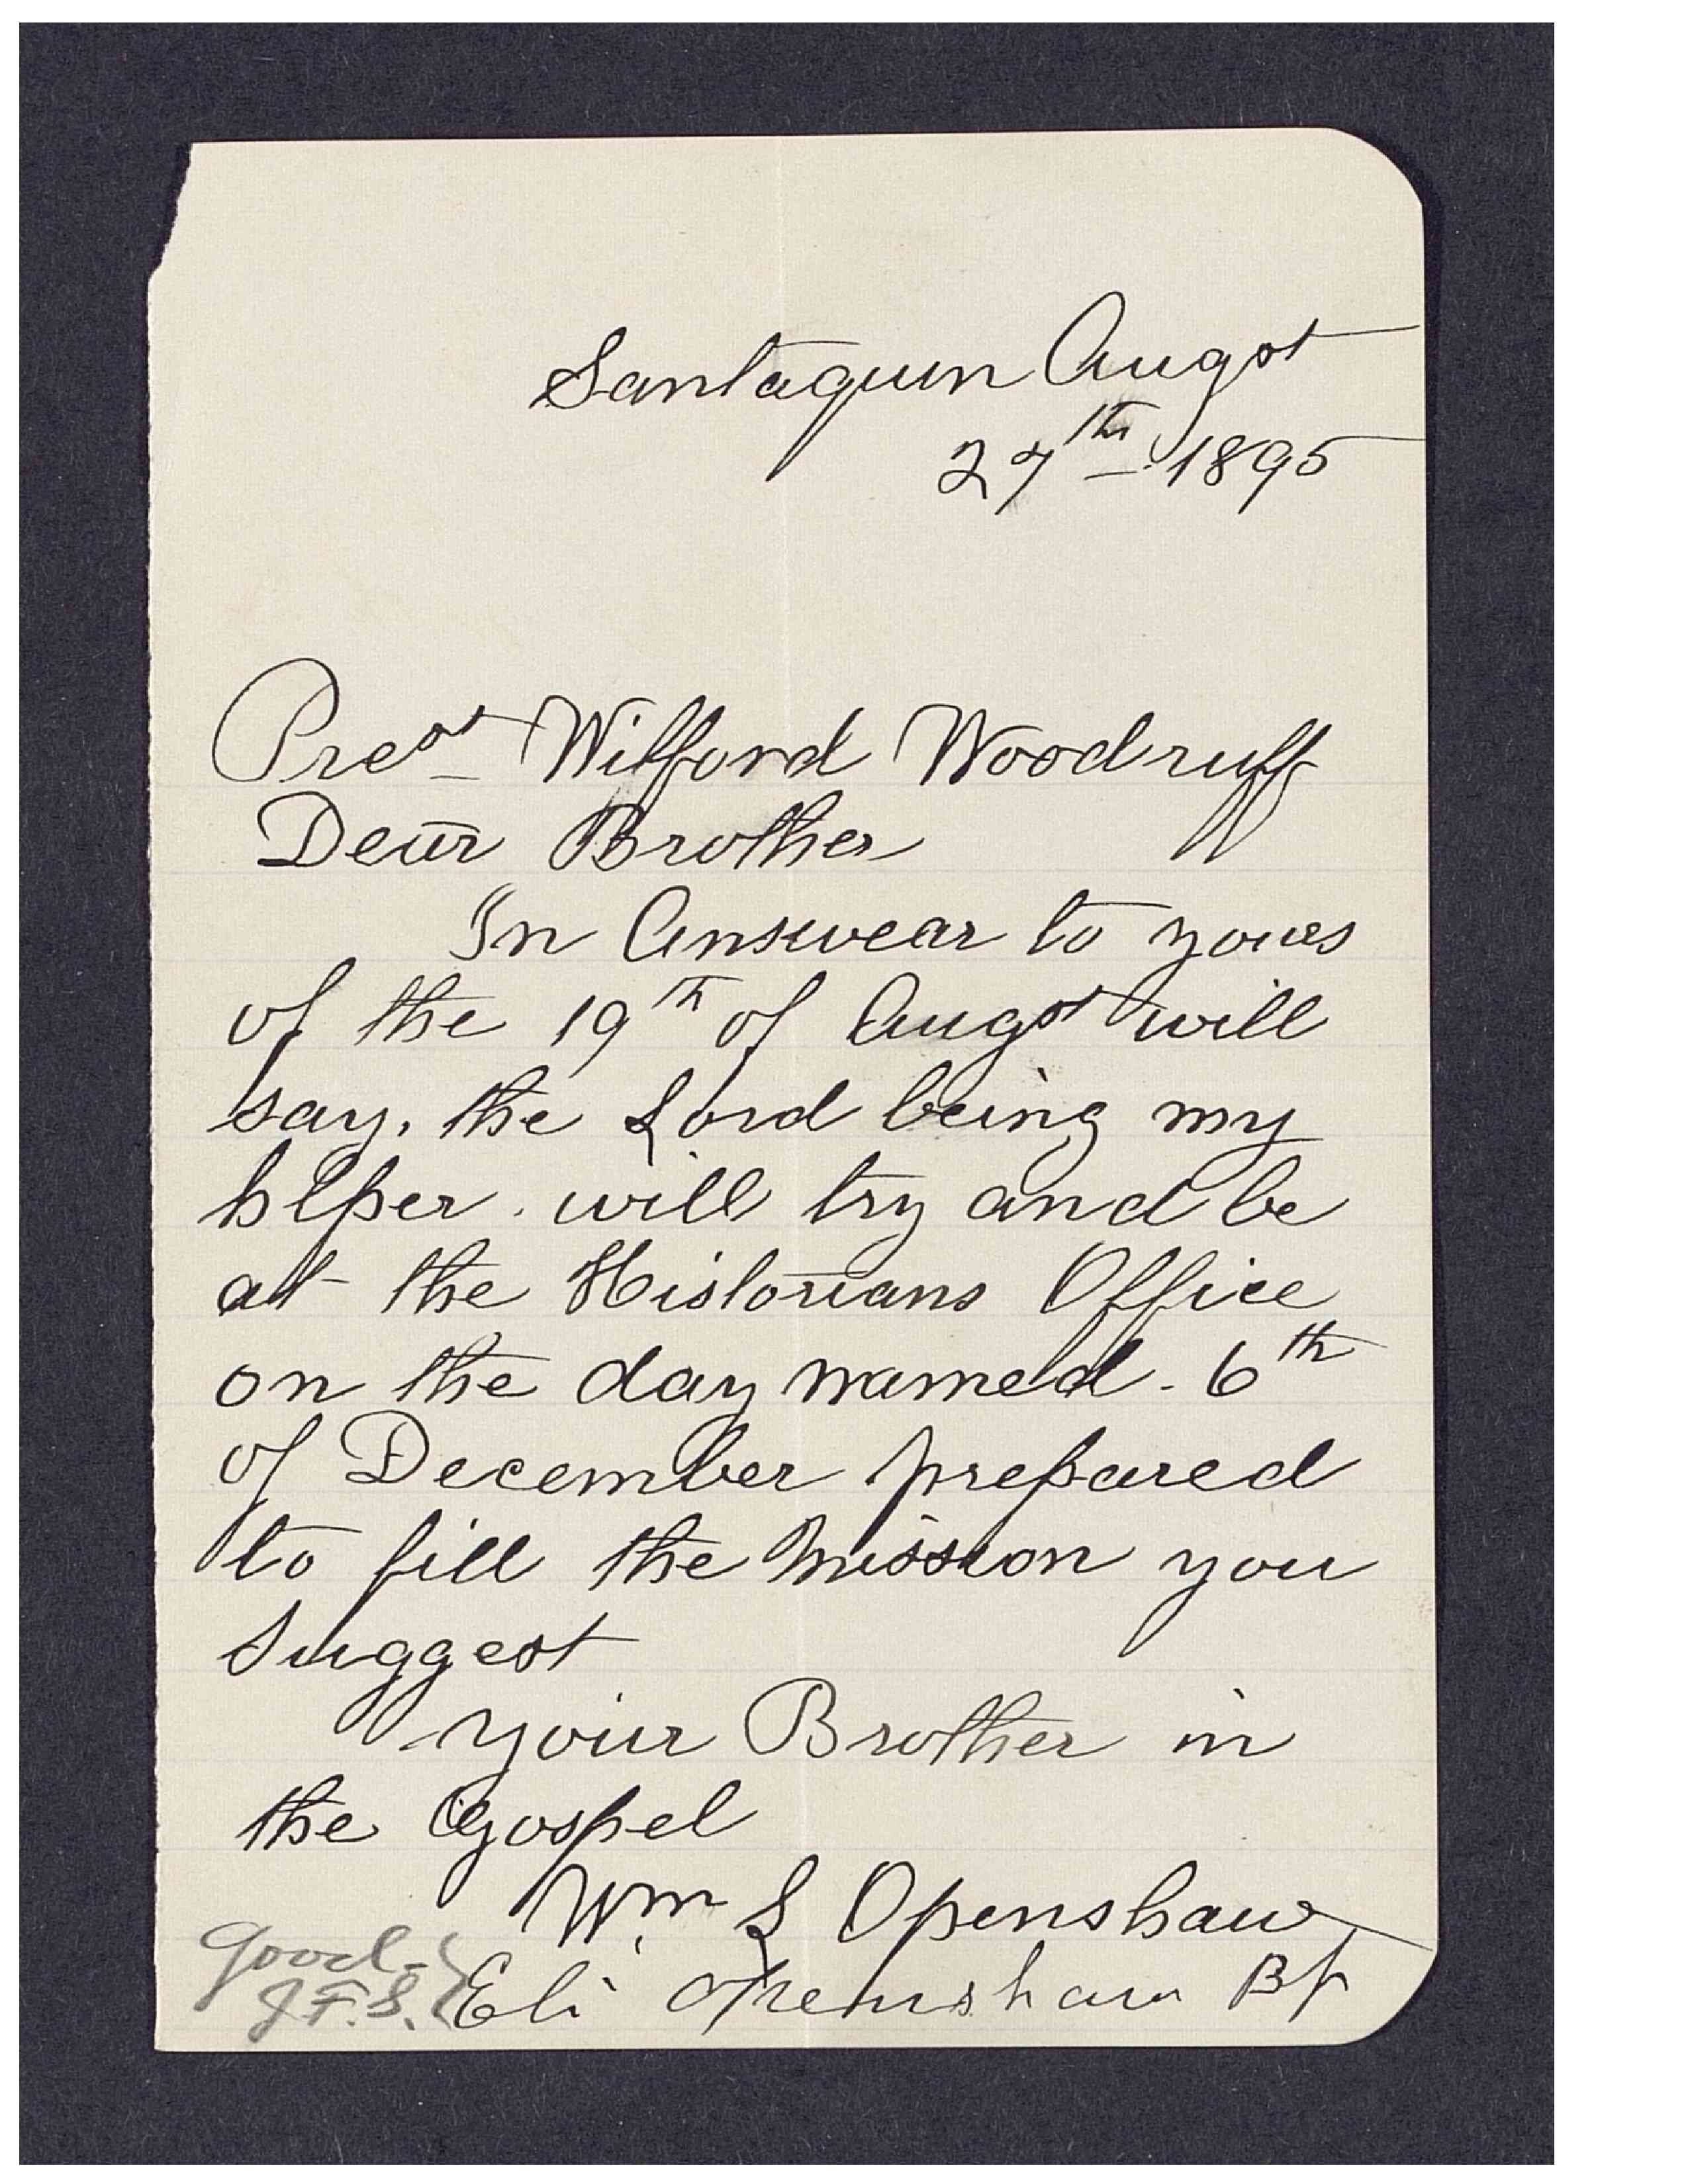 Santaquin Augst
27th 1895
Prest Wilford Woodruff
Dear Brother
In Answear to yours
of the 19th of Augst will
say, the Lord being my
hlper. will try and be
at the Historians Office
on the day named. 6th
of December prepared
to fill the Mission you
suggest
your Brother in
the Gospel
Wm S Openshaw
Good- Eli Openshaw Bp
J. F. S.